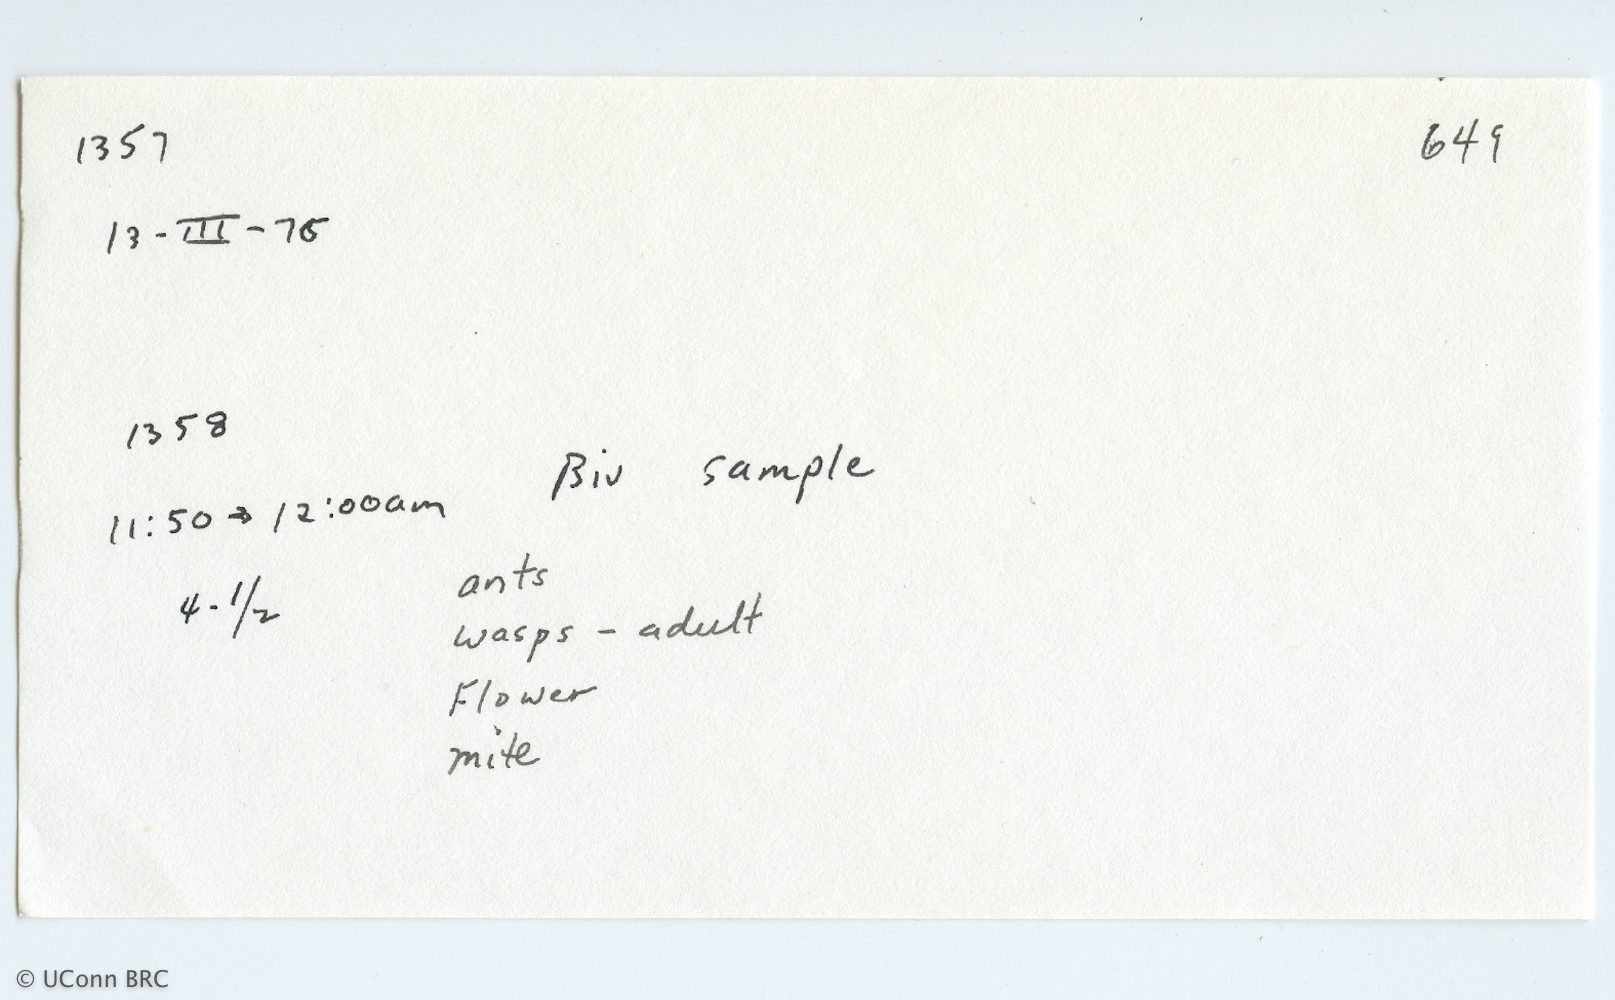 1357
649
13-III-75
1358
Biv sample
11:50 → 12:00am
4-1/2
ants
wasps - adult
Flower
mite
© UConn BRC